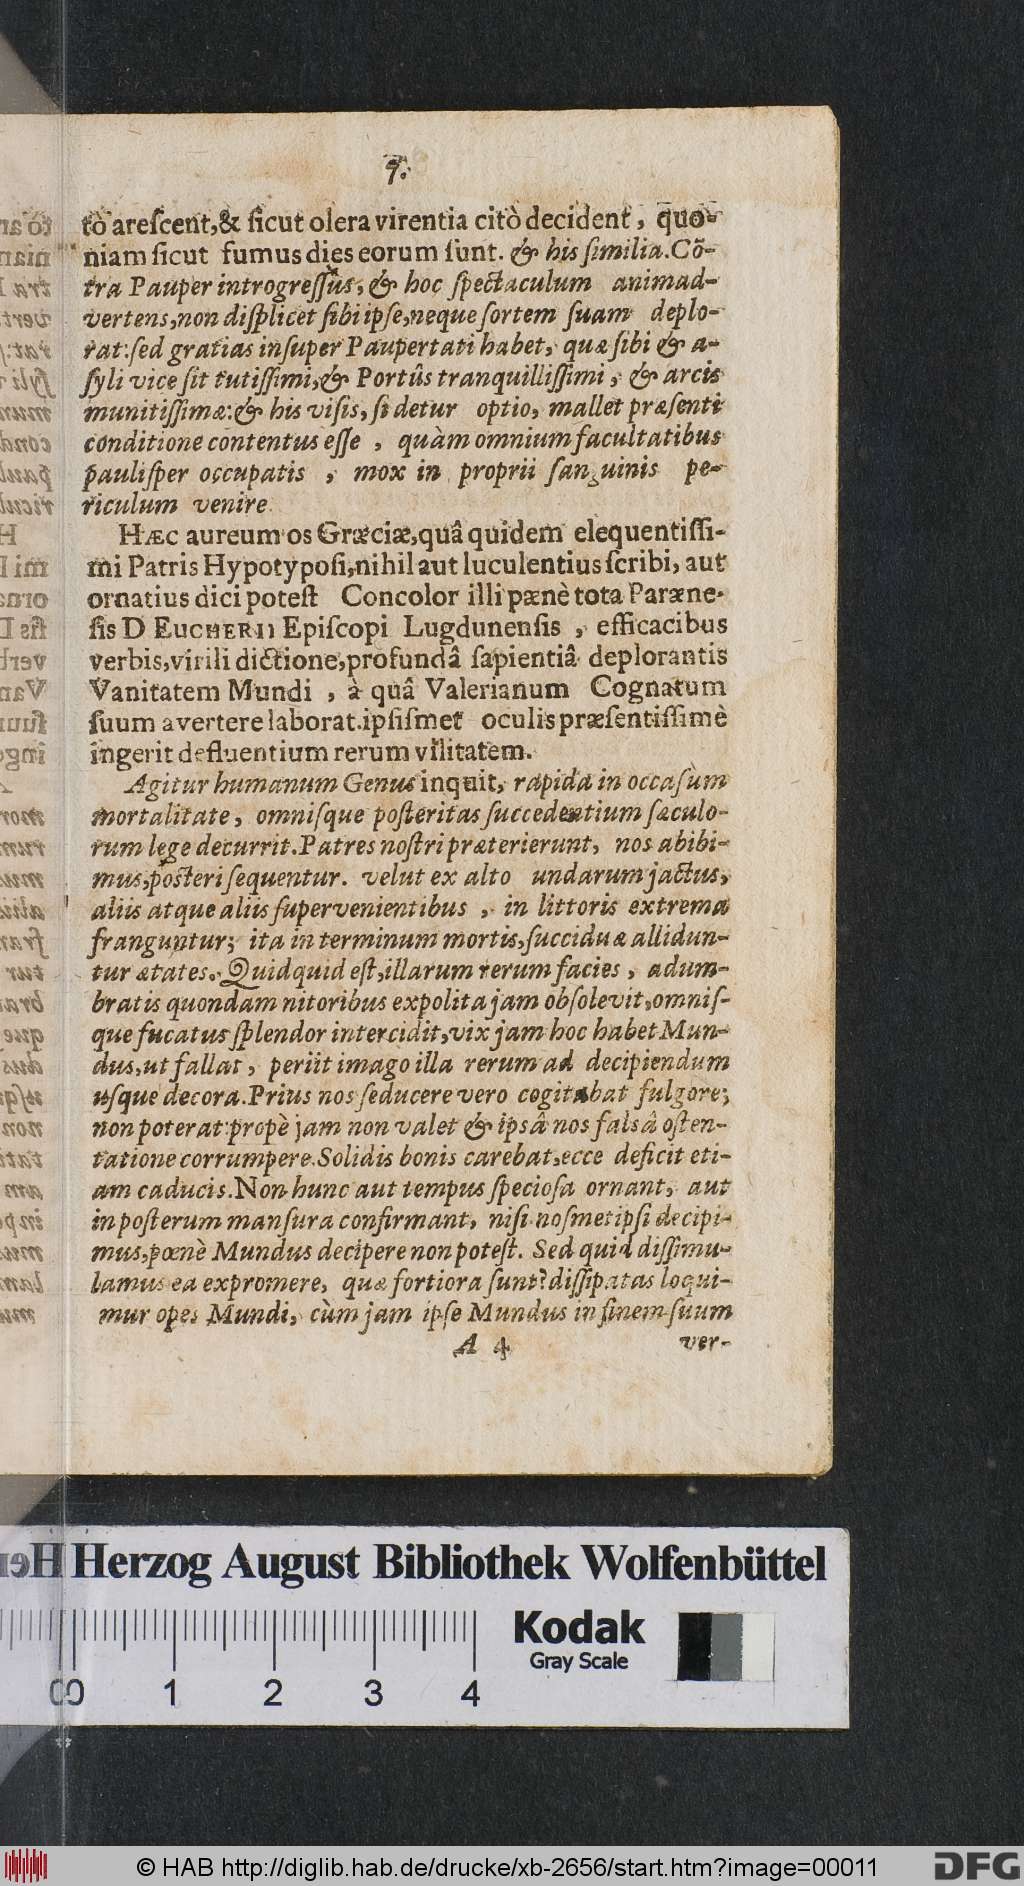 7.
tò areſcent,& ſicut olera virentia citò decident, quo-
niam ſicut fumus dies eorum ſunt. & his ſimilia. Cõ-
tra Pauper introgreſſus, & hoc ſpectaculum animad-
vertens, non diſplicet ſibi ipſe, neque ſortem ſuam deplo-
rat: ſed gratias inſuper Paupertati habet, quæ ſibi & a-
ſyli vice ſit tutiſſimi, & Portûs tranquilliſſimi, & arcis
munitiſſimæ: & his viſis, ſi detur optio, mallet præſenti
conditione contentus eſſe, quàm omnium facultatibus
pauliſper occupatis, mox in proprii ſanguinis pe-
riculum venire
HÆC aureum os Græciæ, quâ quidem elequentiſſi-
mi Patris Hypotypoſi, nihil aut luculentius ſcribi, aut
ornatius dici poteſt Concolor illi pænè tota Paræne-
ſis D EUCHERII Epiſcopi Lugdunenſis, efficacibus
verbis, virili dictione, profundâ ſapientiâ deplorantis
Vanitatem Mundi, à quâ Valerianum Cognatum
ſuum avertere laborat. ipſiſmet oculis præſentiſſimè
ingerit defluentium rerum vilitatem.
Agitur humanum Genus inquit, rapida in occaſùm
mortalitate, omniſque poſteritas ſuccedentium ſæculo-
rum lege decurrit. Patres noſtri præterierunt, nos abibi-
mus, poſteri ſequentur. velut ex alto undarum jactus,
aliis atque aliis ſupervenientibus, in littoris extrema
franguntur; ita in terminum mortis, ſucciduæ allidun-
tur ætates. Quidquid eſt, illarum rerum facies, adum-
bratis quondam nitoribus expolita jam obſolevit, omniſ-
que fucatus ſplendor intercidit, vix jam hoc habet Mun-
dus, ut fallat, periit imago illa rerum ad decipiendum
uſque decora. Prius nos ſeducere vero cogitabat fulgore;
non poterat: propè jam non valet & ipsâ nos falsâ oſten-
tatione corrumpere. Solidis bonis carebat, ecce deficit eti-
am caducis. Non hunc aut tempus ſpecioſa ornant, aut
in poſterum manſura confirmant, niſi noſmetipſi decipi-
mus, pœnè Mundus decipere non poteſt. Sed quid diſſimu-
lamus ea expromere, quæ fortiora ſunt? diſſipatas loqui-
mur opes Mundi, cùm jam ipſe Mundus in ſinem ſuum
A 4 ver-
Herzog August Bibliothek Wolfenbüttel
Kodak
Gray Scale
0 1 2 3 4
© HAB http://diglib.hab.de/drucke/xb-2656/start.htm?image=00011
DFG